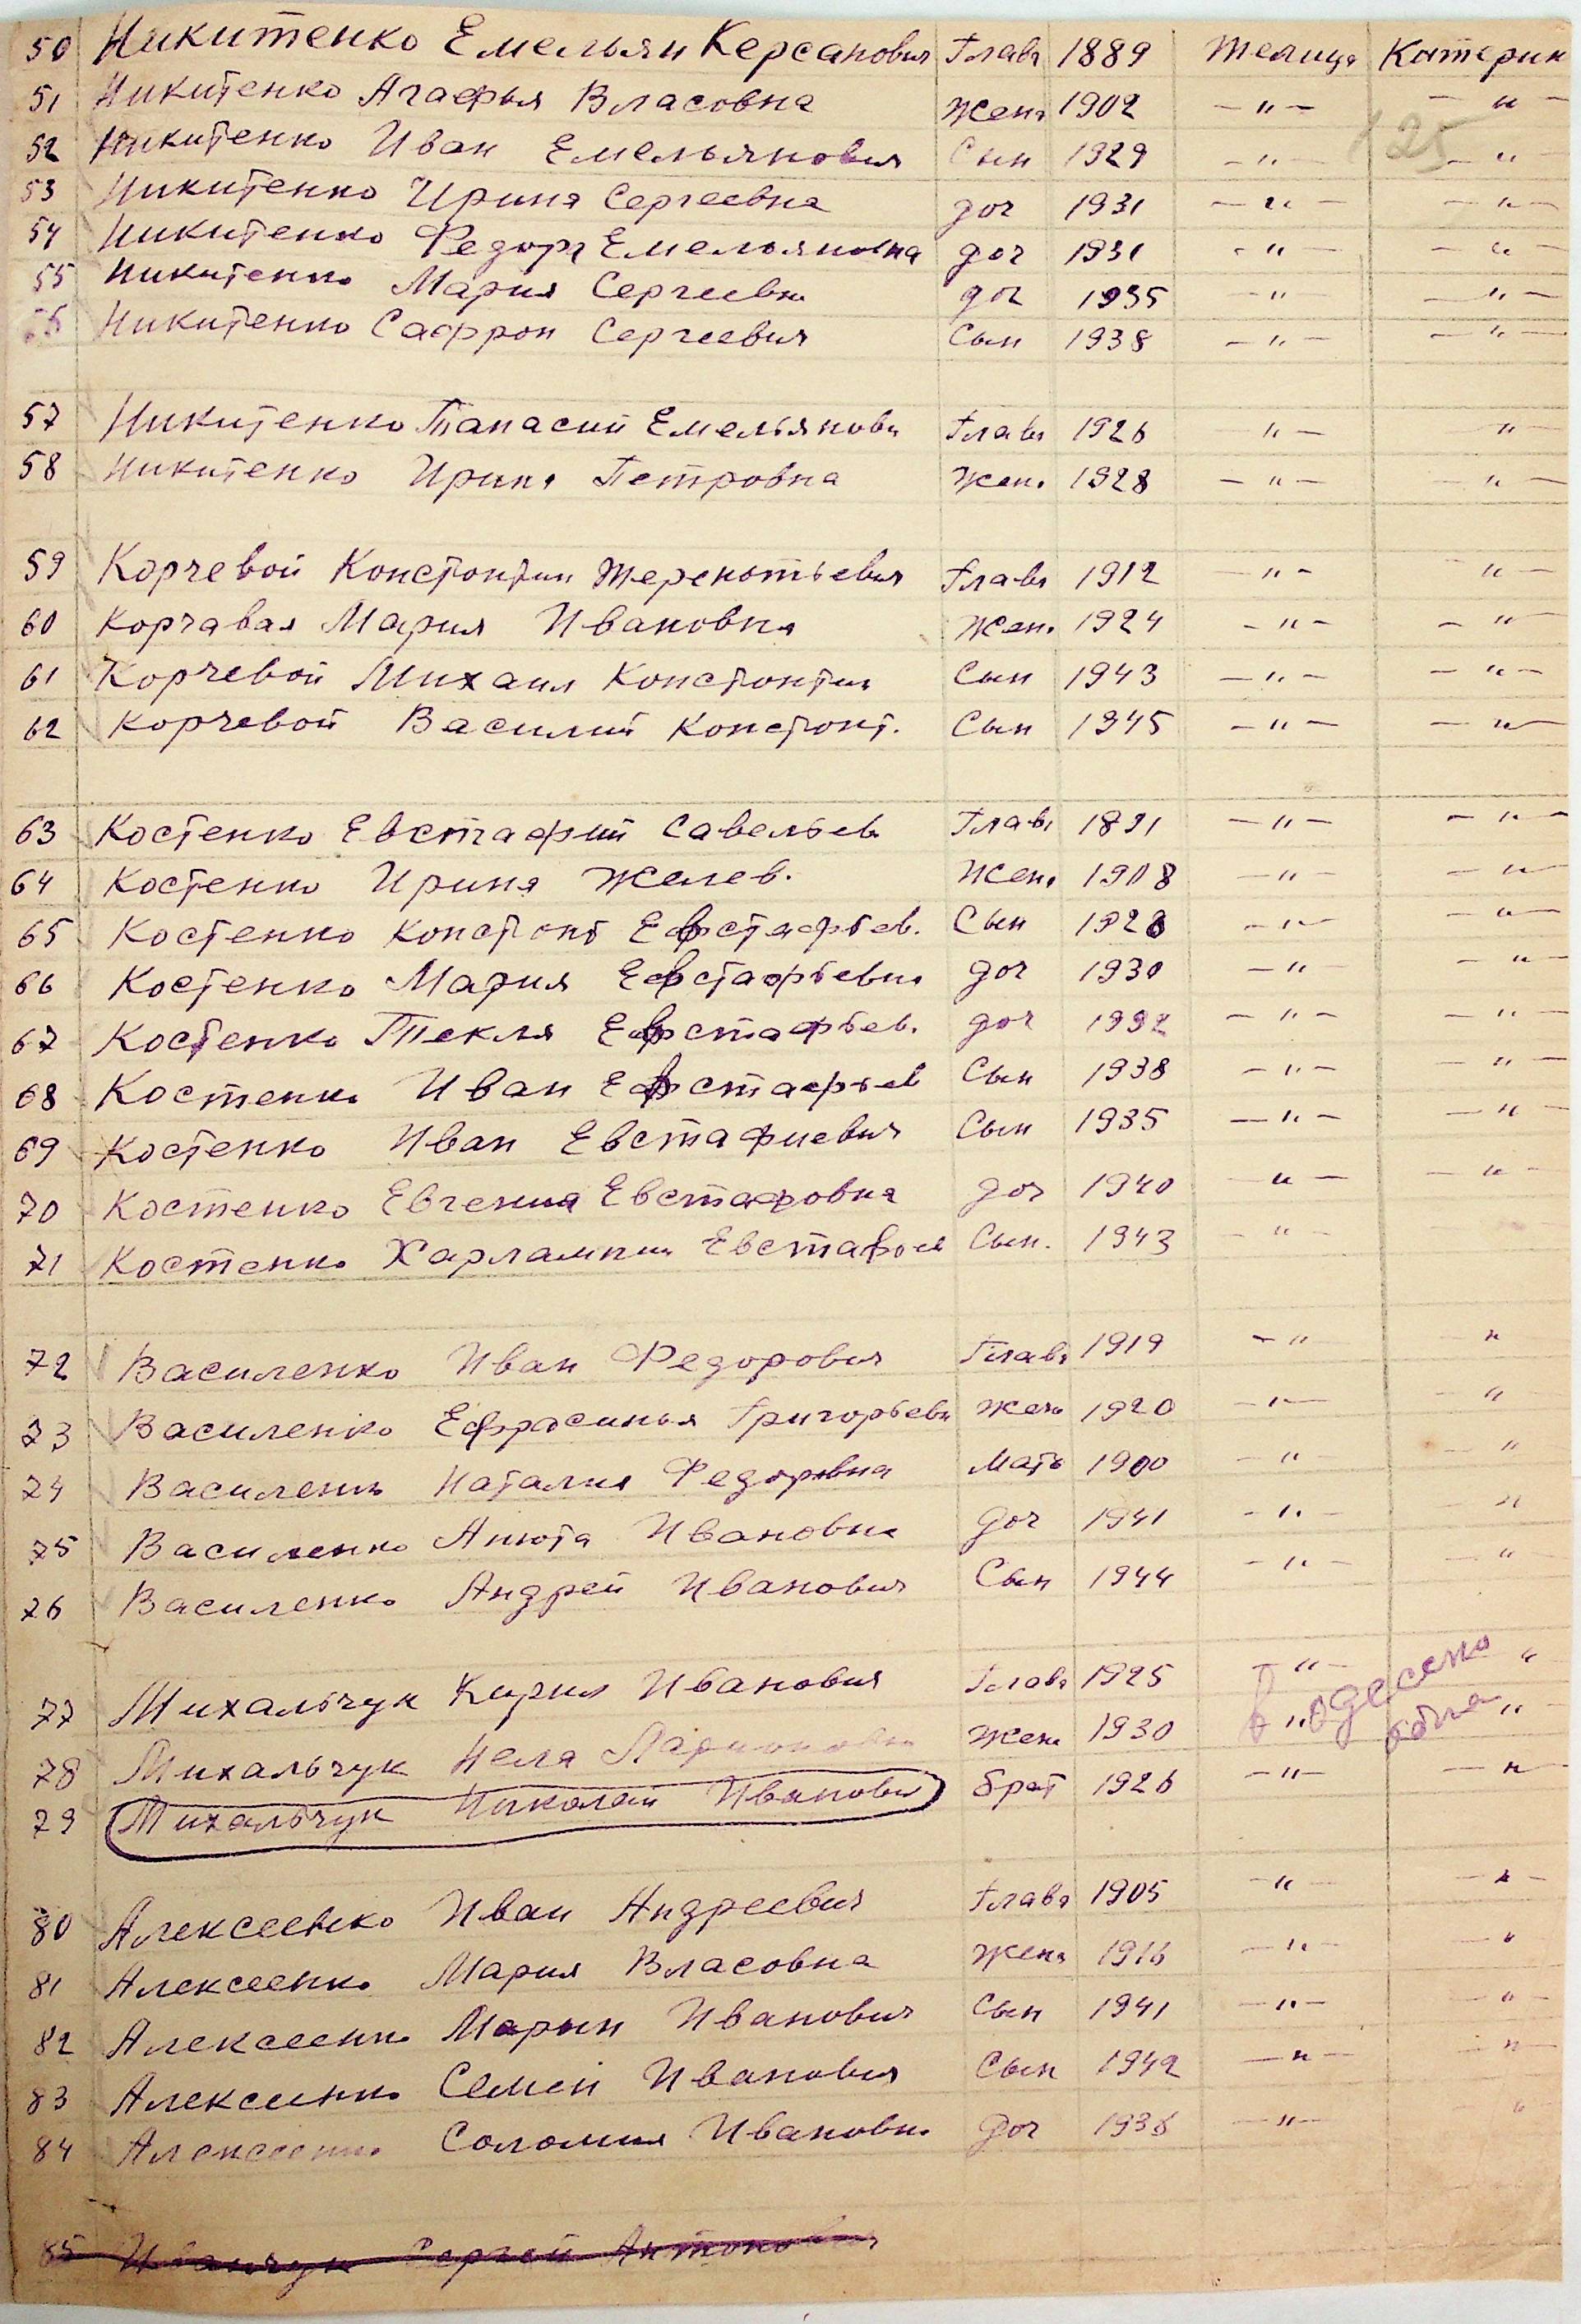 50 Никитенко Емельян Керсанович Глава 1889 Телица Катерин
51 Никитенко Агафья Власовна Жена 1902 — " — — " —
125
52 Никитенко Иван Емельянович Сын 1929 — " — — "
53 Никитенко Ирина Сергеевна доч 1931 — " — — " —
54 Никитенко Федора Емельяновна доч 1931 - " — " —
55 Никитенко Мария Сергеевна доч 1935 — " — — " —
56 Никитенко Сафрон Сергеевич Сын 1938 — " — — " —
57 Никитенко Танасий Емельянови Глава 1926 — " — "
58 Никитенко Ирина Петровна Жена 1928 — " — — " —
59 Корчевой Констонтин Терентьевич Глава 1912 — " - " —
60 Корчавая Мария Ивановна Жена 1924 — " — — " —
61 Корчевой Михаил Констонтин Сын 1943 — " — — " —
62 Корчевой Василий Констонт. Сын 1945 — " — — " —
63 Костенко Евстафий Савельев Глава 1891 — " — — " —
64 Костенко Ирина Желев. Жена 1908 — " — — " —
65 Костенко Констонт Евстафьев. Сын 1928 — " — — " —
66 Костенко Мария Евстафьевна доч 1930 — " — " —
67 Костенко Текля Евстафьев. доч 1932 — " — — " —
68 Костенко Иван Евстафьев Сын 1938 — " — — " —
69 Костенко Иван Евстафиевич Сын 1935 — " — — " —
70 Костенко Евгения Евстафовна доч 1940 — " — — " —
71 Костенко Харлампий Евстафьев Сын. 1943 — " —
72 Василенко Иван Федорович Глава 1919 — " — "
73 Василенко Ефросинья Григорьевн Жена 1920 — " — — "
74 Василенко Наталия Федоровна Мать 1900 — " — — "
75 Василенко Анюта Ивановна доч 1941 — " — — "
76 Василенко Андрей Иванович Сын 1944 — " — — "
77 Михальчук Кирил Иванович Глава 1925 — " — "
78 Михальчук Неля Ларионовна Жена 1930 " "
в одесско
79 Михальчук Николай Иванович брат 1926 — " — — " —
80 Алексеенко Иван Андреевич Глава 1905 — " — — " —
81 Алексеенко Мария Власовна Жена 1916 — " — — "
82 Алексеенко Марын Иванович Сын 1941 — " — — " —
83 Алексеенко Семен Иванович Сын 1942 — " — — " —
84 Алексеенко Соломия Ивановна Доч 1936 — " — "
85 Иванчук Сергей Антонович